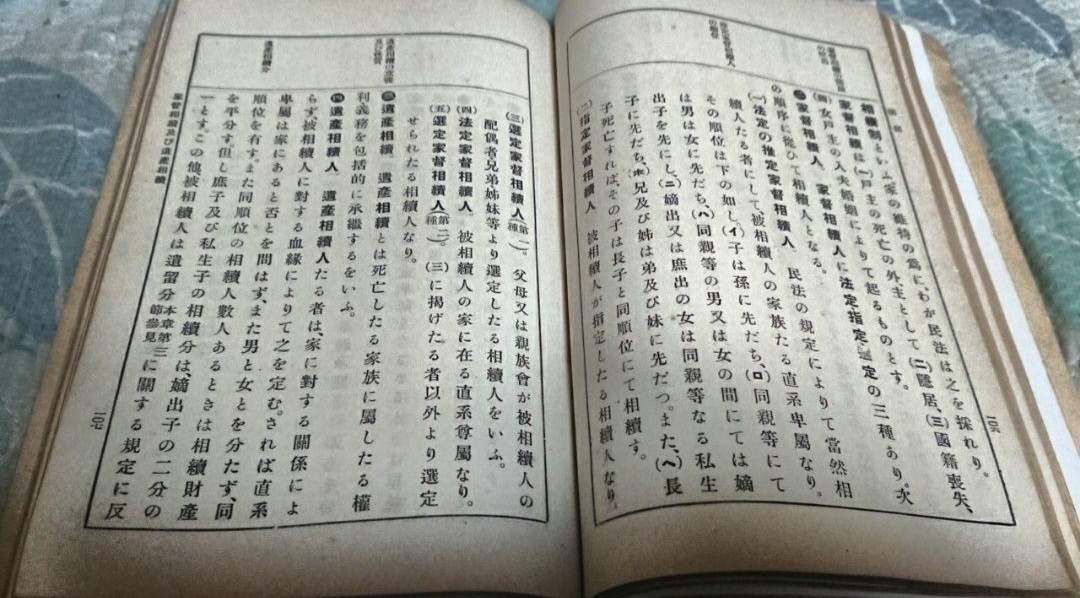 相續制といふ。家の維持の爲に、わが民法は之を採れり。
家督相續は(一)戶主の死亡の外主として(二)隱居、(三)國籍喪失、
(四)女戶主の入夫婚姻によりて起るものとす。
家督相續人 家督相續人に法定指定選定の三種あり。次
の順序に從ひて相續人となる。
(一)法定の推定家督相續人 民法の規定によりて當然相
續人たる者にして、被相續人の家族たる直系卑屬なり。
その順位は下の如し、(イ)子は孫に先だち、(ロ)同親等にて
は男は女に先だち、(ハ)同親等の男又は女の間にては嫡
出子を先にし、(ニ)嫡出又は庶出の女は同親等なる私生
子に先だち、(ホ)兄及び姉は弟及び妹に先だつ。また、(ヘ)長
子死亡すれば、その子は長子と同順位にて相續す。
(二)指定家督相續人 被相續人が指定したる相續人なり。
(三)選定家督相續人(第一種)。父母又は親族會が被相續人の
配偶者兄弟姊妹等より選定したる相續人をいふ。
(四)法定家督相續人。被相續人の家に在る直系尊屬なり。
(五)選定家督相續人(第二種)。(三)に揭げたる者以外より選定
せられたる相續人なり。
㊂遺產相續 遺產相續とは死亡したる家族に屬したる權
利義務を包括的に承繼するをいふ。
㊃遺產相續人 遺產相續人たる者は、家に對する關係によ
らず、被相續人に對する血緣によりて之を定む。されば直系
卑屬は家にあると否とを問はず、また男と女とを分たず、同
順位を有す。また同順位の相續人數人あるときは相續財產
を平分す。但し庶子及び私生子の相續分は、嫡出子の二分の
一とす。この他、被相續人は遺留分(本章第三節參見)に關する規定に反
家督相續及び遺產相續
遺產相續分